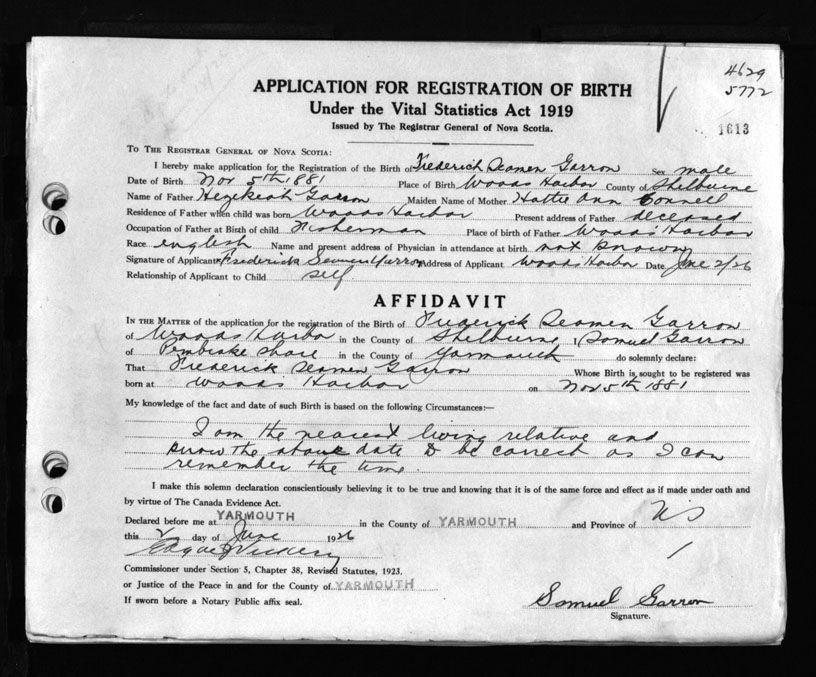 4629
5772
1613
APPLICATION FOR REGISTRATION OF BIRTH
Under the Vital Statistics Act 1919
Issued by The Registrar General of Nova Scotia.
To The Registrar General of Nova Scotia:
I hereby make application for the Registration of the Birth of Frederick Seamen Garron Sex male
Date of Birth Nov 5th 1881 Place of Birth Woods Harbor County of Shelburne
Name of Father Hezekeah Garron Maiden Name of Mother Hattie Ann Connell
Residence of Father when child was born Woods Harbor Present address of Father deceased
Occupation of Father at Birth of child Fisherman Place of birth of Father Woods Harbor
Race english Name and present address of Physician in attendance at birth not known
Signature of Applicant Frederick Address of Applicant Woods Harbor Date June 2/26
Relationship of Applicant to Child self
AFFIDAVIT
In the Matter of the application for the registration of the Birth of Frederick Seamen Garron
of Woods Harbor in the County of Shelburne, I, Samuel Garron
of Pembroke Shore in the County of Yarmouth do solemnly declare:
That Frederick Seamen Garron Whose Birth is sought to be registered was
born at Woods Harbor on Nov 5th 1881
My knowledge of the fact and date of such Birth is based on the following Circumstances:—
I am the nearest living relative and
know the above date to be correct as I can
remember the time.
I make this solemn declaration conscientiously believing it to be true and knowing that it is of the same force and effect as if made under oath and
by virtue of The Canada Evidence Act.
Declared before me at YARMOUTH in the County of YARMOUTH and Province of NS
this 2 day of June 1926
Commissioner under Section 5, Chapter 38, Revised Statutes, 1923.
or Justice of the Peace in and for the County of YARMOUTH
If sworn before a Notary Public affix seal.
Samuel Garron
Signature.